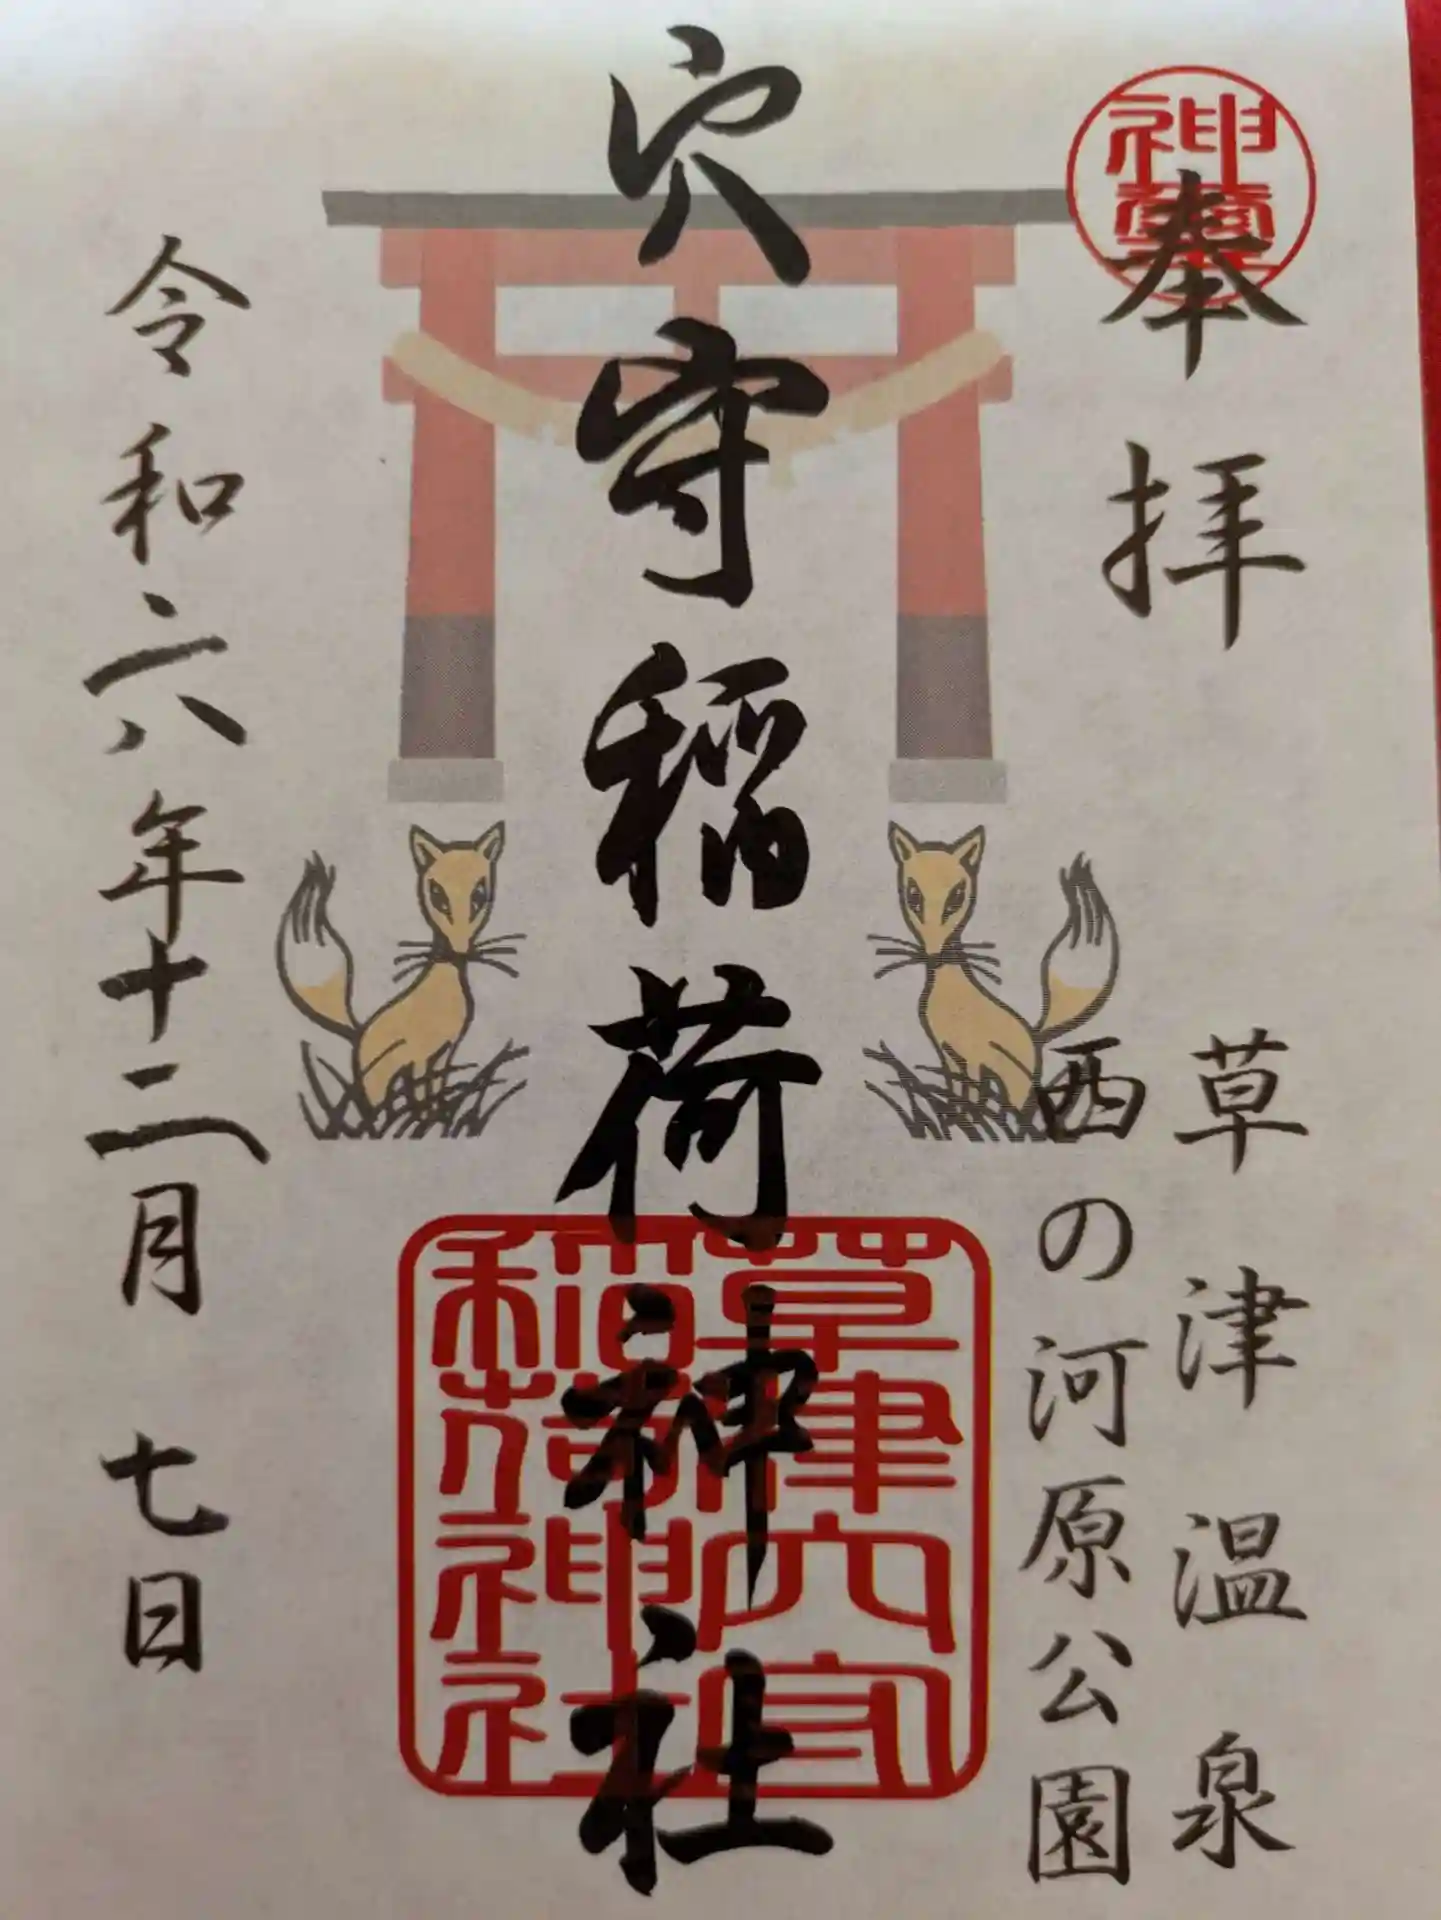 奉拝
草津温泉
西の河原公園
穴守稲荷神社
草津穴守
稲荷神社
令和六年十二月 七日